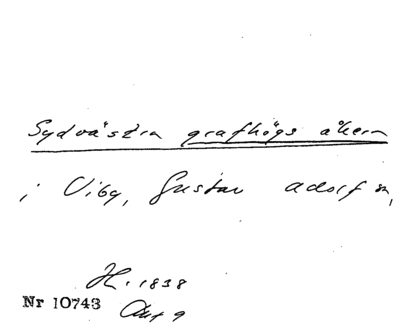 Sydvästra grafhögs åkern
i Viby, Gustav Adolf sn,
H. 1838
Nr 10743 Akt 9